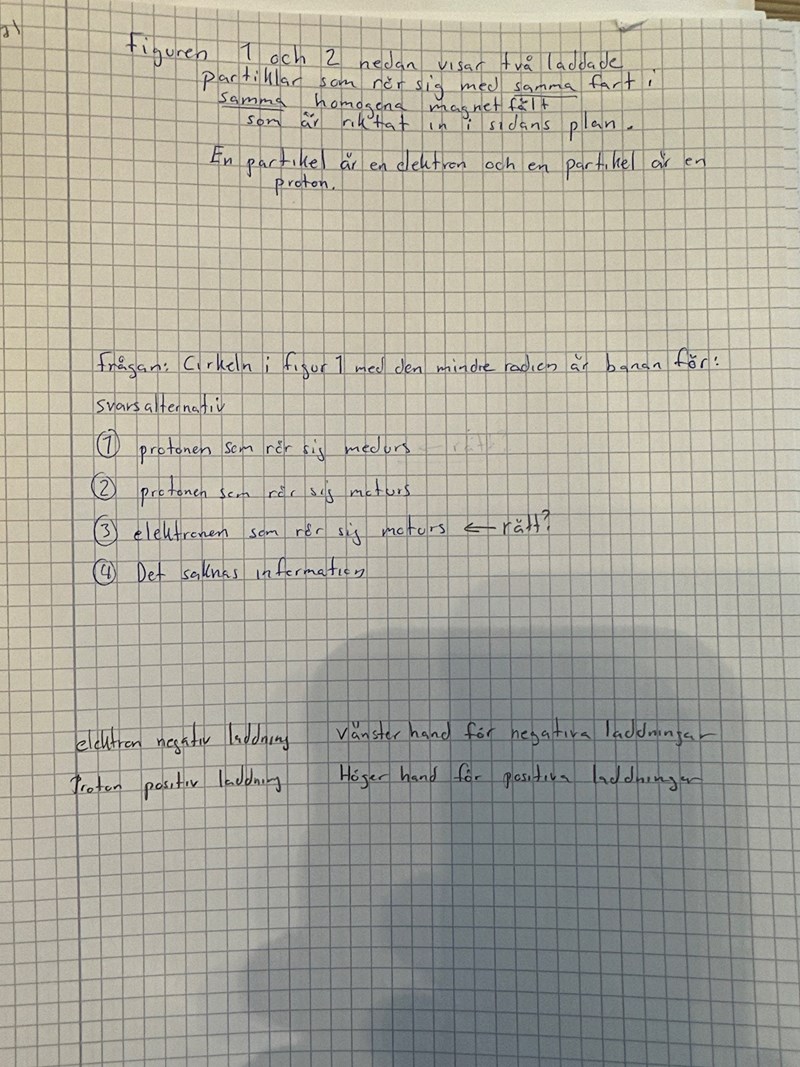 Figuren 1 och 2 nedan visar två laddade
partiklar som rör sig med samma fart i
samma homogena magnetfält
som är riktat in i sidans plan.
En partikel är en elektron och en partikel är en
proton.
frågan: Cirkeln i figur 1 med den mindre radien är banan för:
svarsalternativ
① protonen som rör sig medurs
② protonen som rör sig moturs
③ elektronen som rör sig moturs ← rätt?
④ Det saknas information
elektron negativ laddning vänster hand för negativa laddningar
Proton positiv laddning Höger hand för positiva laddningar